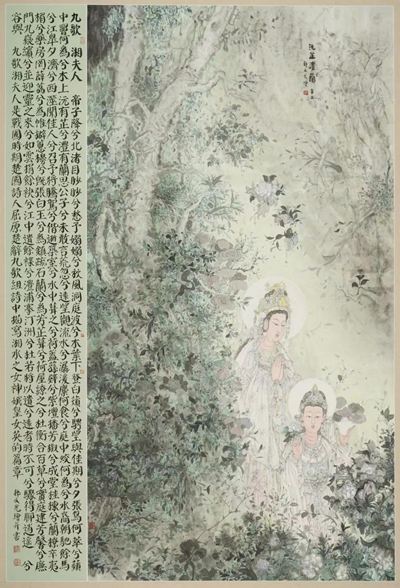 沅芷澧蘭
九歌 湘夫人 帝子降兮北渚目眇眇兮愁予嫋嫋兮秋風洞庭波兮木葉下登白薠兮騁望與佳期兮夕張鳥何萃兮蘋
中罾何為兮木上沅有芷兮澧有蘭思公子兮未敢言荒忽兮遠望觀流水兮潺湲麋何食兮庭中蛟何為兮水裔朝馳余馬
兮江皋夕濟兮西澨聞佳人兮召予將騰駕兮偕逝築室兮水中葺之兮荷蓋蓀壁兮紫壇播芳椒兮成堂桂棟兮蘭橑辛夷
楣兮藥房罔薜荔兮為帷擗蕙櫋兮既張白玉兮為鎮疏石蘭兮為芳芷葺兮荷屋繚之兮杜衡合百草兮實庭建芳馨兮廡
門九嶷繽兮並迎靈之來兮如雲捐余袂兮江中遺余褋兮澧浦搴汀洲兮杜若將以遺兮遠者時不可兮驟得聊逍遙兮
容與 九歌湘夫人是戰國時期楚國詩人屈原楚辭九歌組詩中描寫湘水之女神娥皇女英的篇章